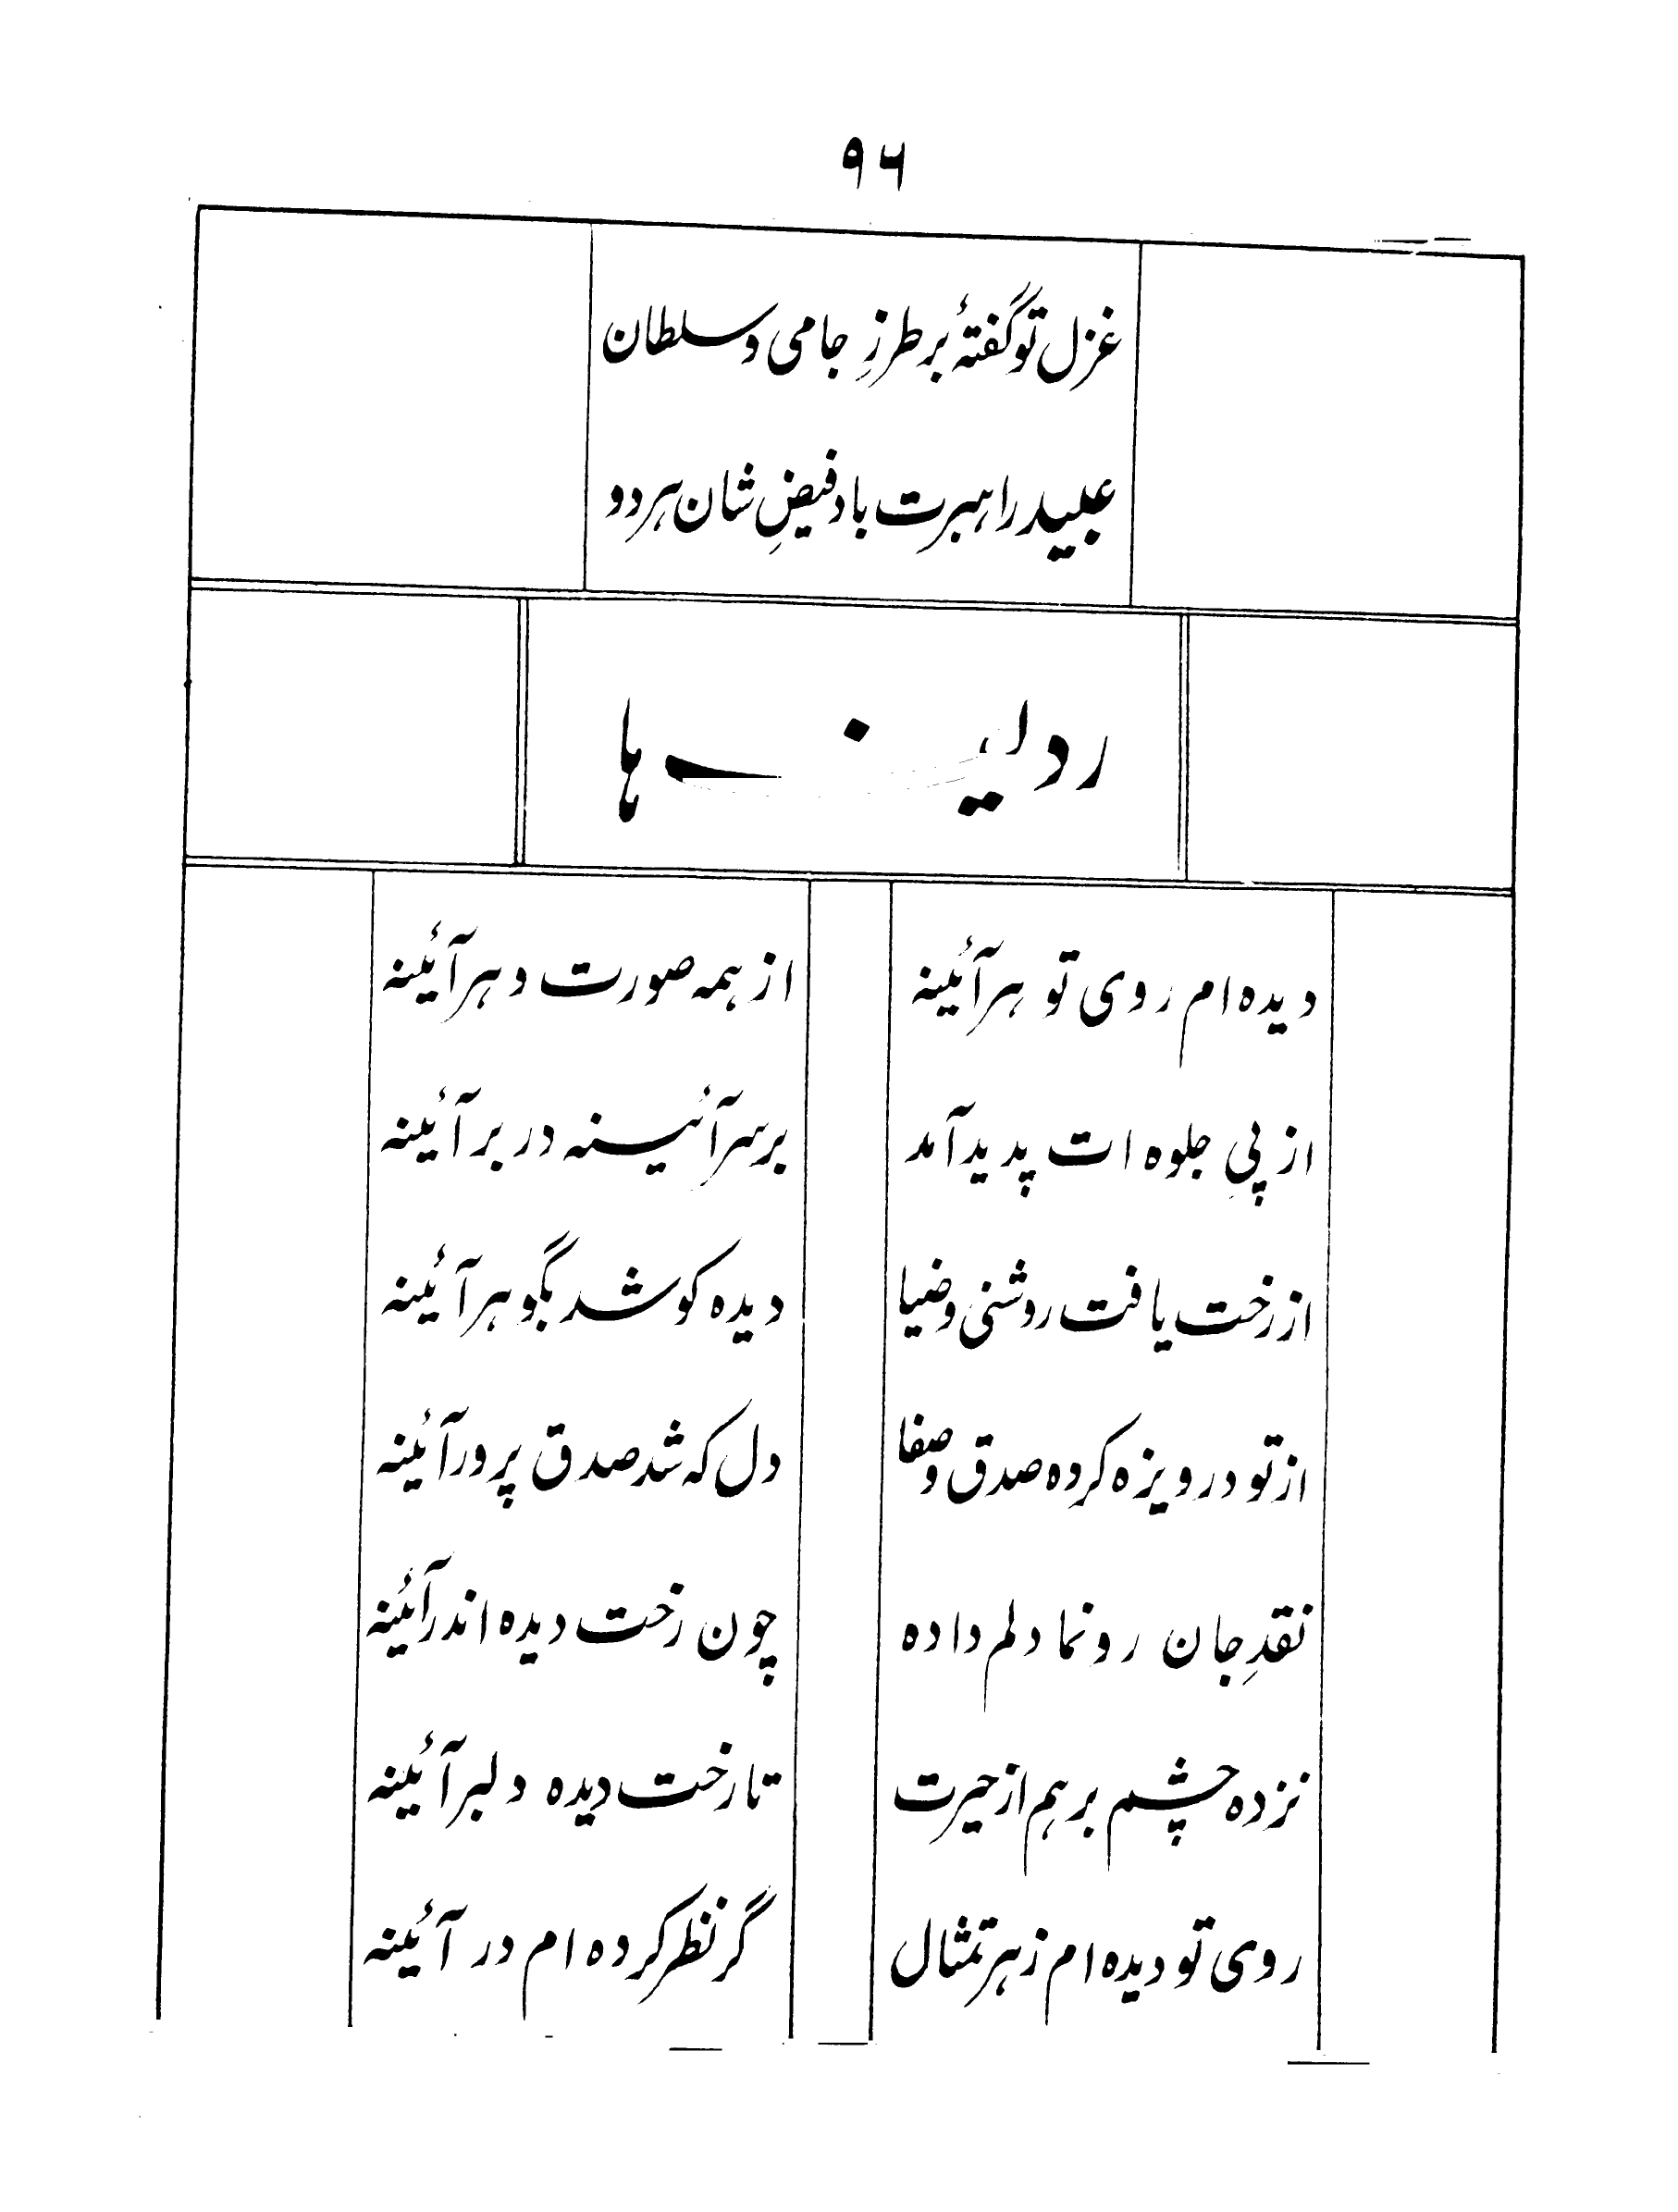 ۹۶
غزل تو گفتۂ بر طرزِ جامی و سلطان
عبید راہبرت باد فیضِ شان ہر دو
ردیف ہا
دیدہ ام روی تو ہر آئینہ
از ہمہ صورت و ہر آئینہ
از پیِ جلوہ ات پدید آمد
بر سر آئینہ در بر آئینہ
از رخت یافت روشنی و ضیا
دیدہ کو شد بگو ہر آئینہ
از تو درویزہ کردہ صدق و صفا
دل کہ شد صدق پرور آئینہ
نقدِ جان رونما دلم دادہ
چون رخت دیدہ اند رآئینہ
نزدہ چشم بر ہم از حیرت
تا رخت دیدہ دلبر آئینہ
روی تو دیدہ ام ز ہر تمثال
گر نظر کردہ ام در آئینہ